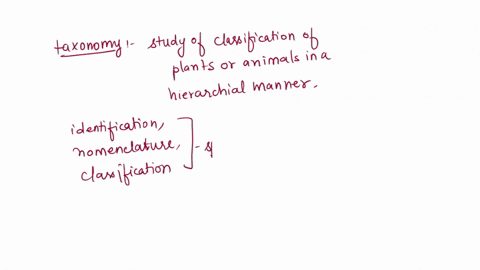 taxonomy :- study of classification of
plants or animals in a
hierarchial manner.
identification,
nomenclature,
classification